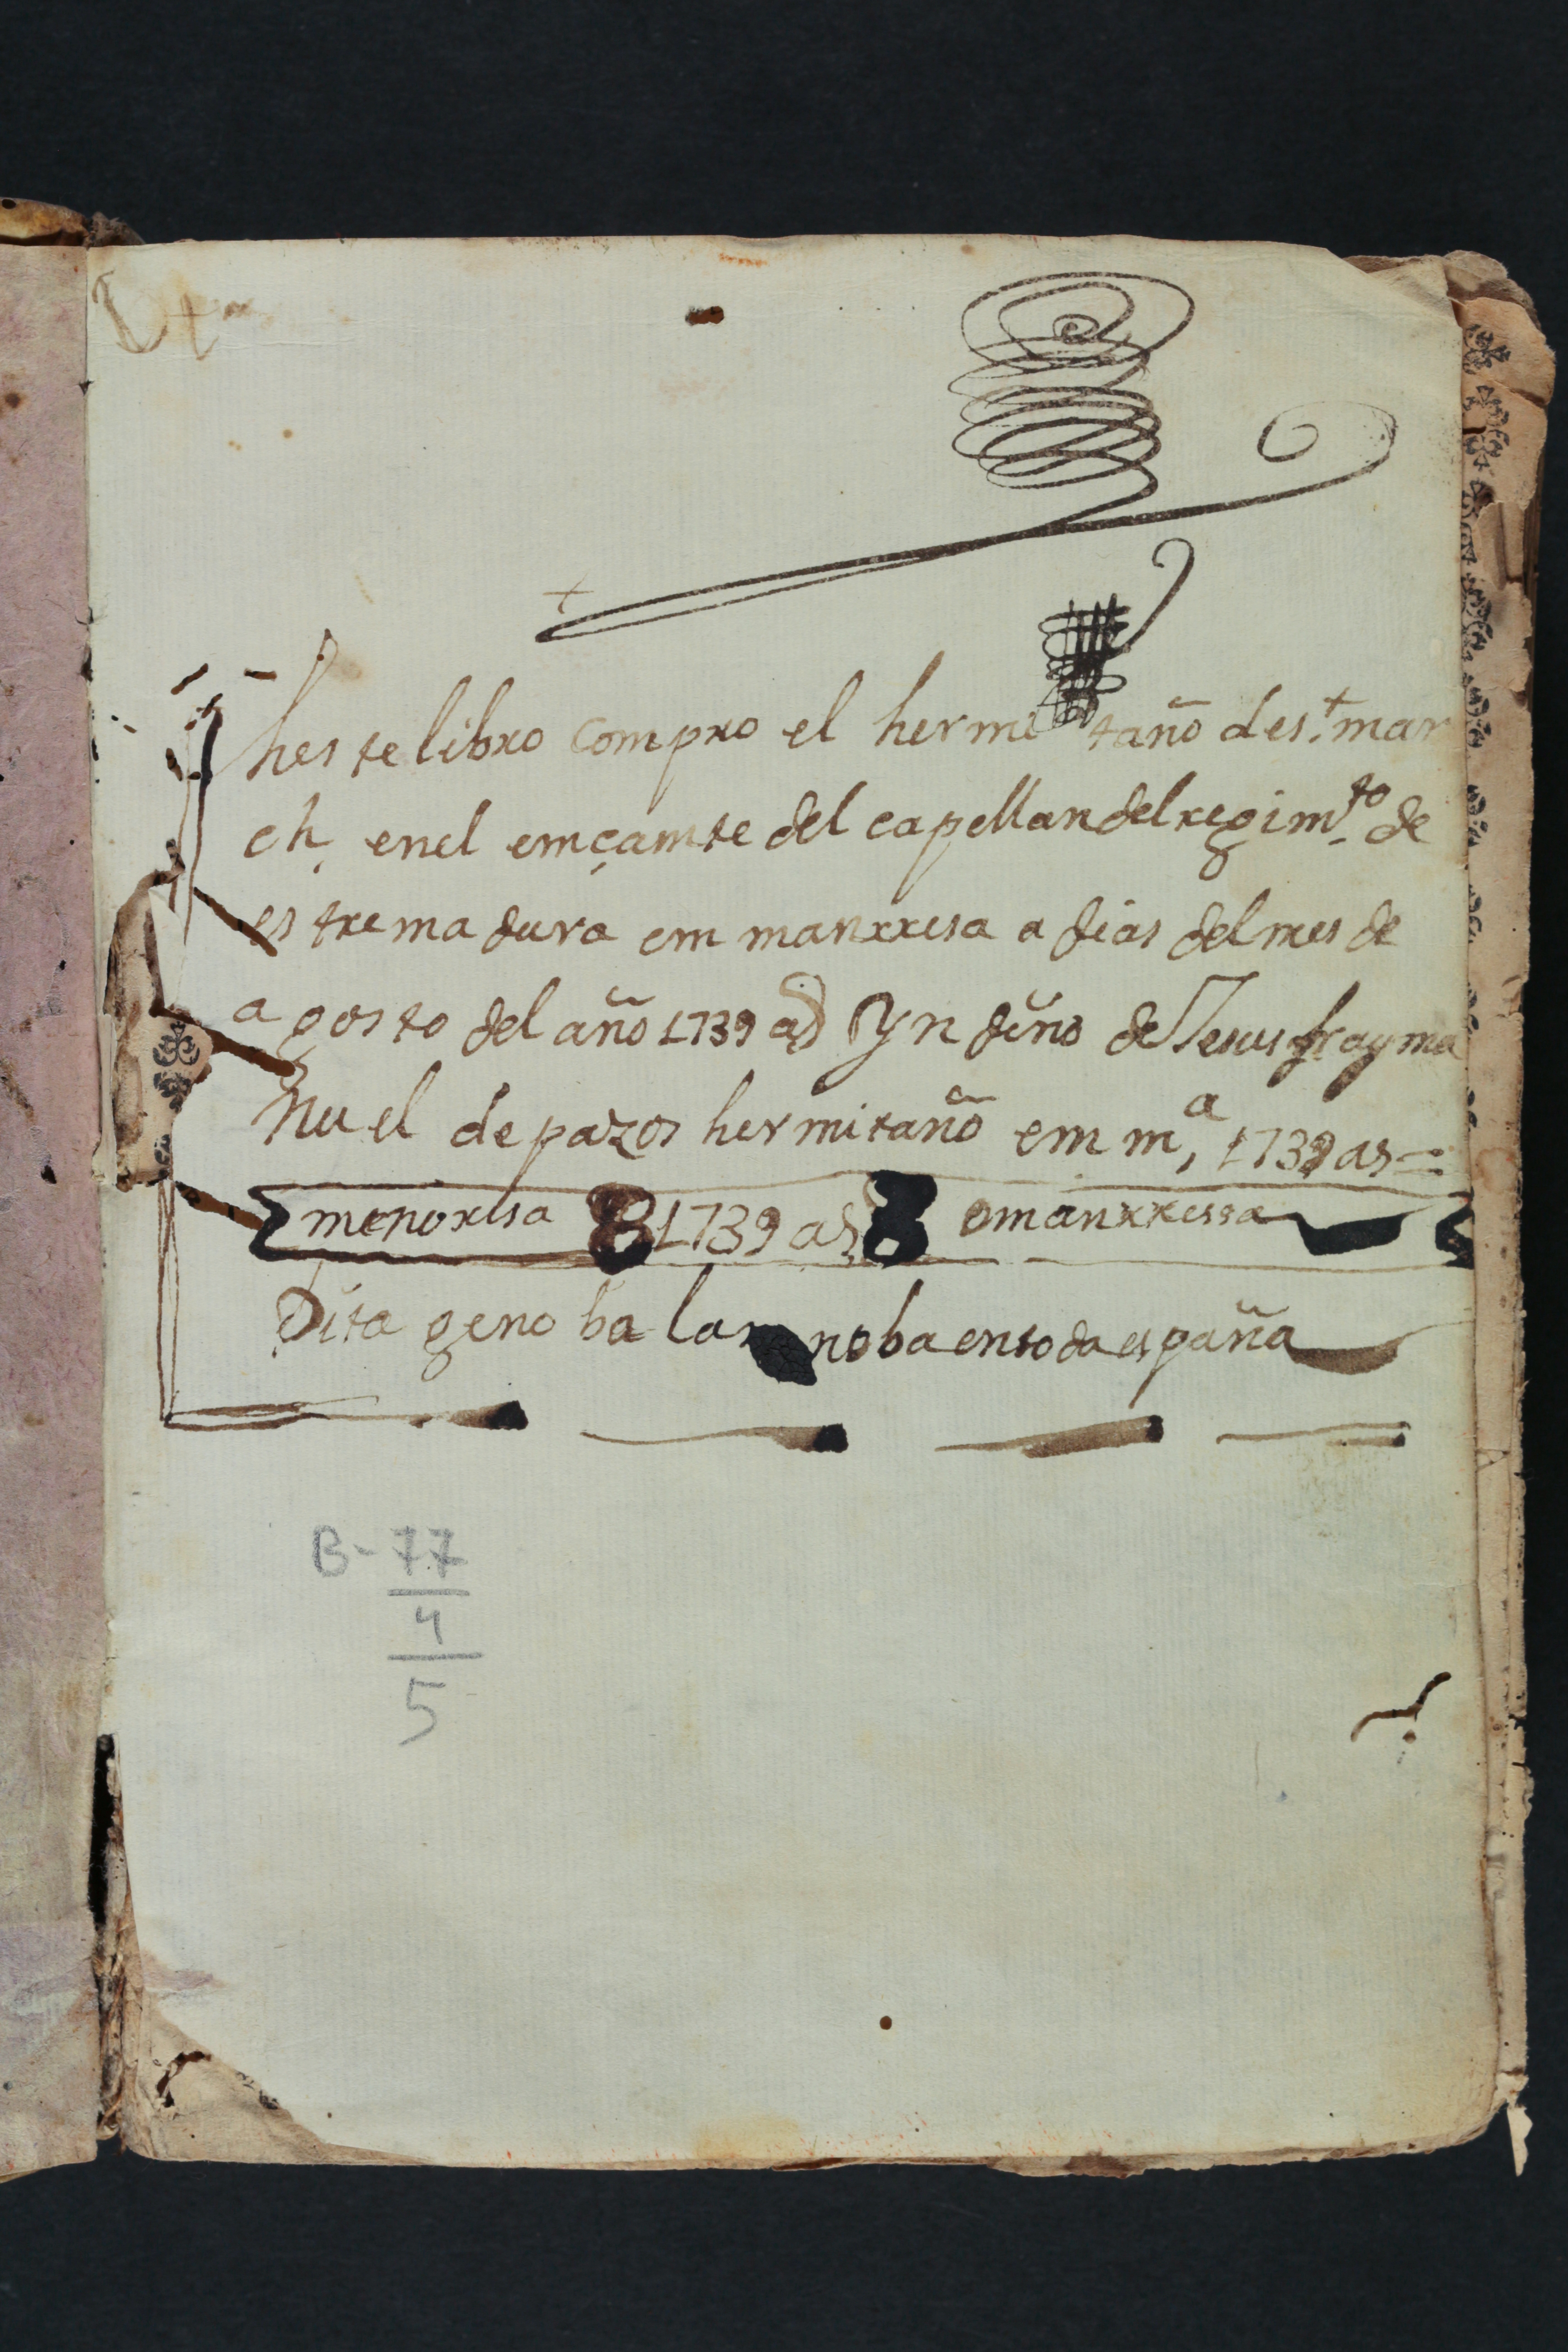 heste libro compro el hermitaño de s.ᵗ mar
ch, en el emçamte del capellan del regim.ᵗᵒ de
estremadura em manrresa a dias del mes de
agosto del año 1739 as Yndino de Jesus fray ma
nuel de pazos hermitaño em mᵃ, 1739 as =
menorisa 8 1739 as 8 omanrressa
Dita geno ba la noba en toda españa
B-77
4
5